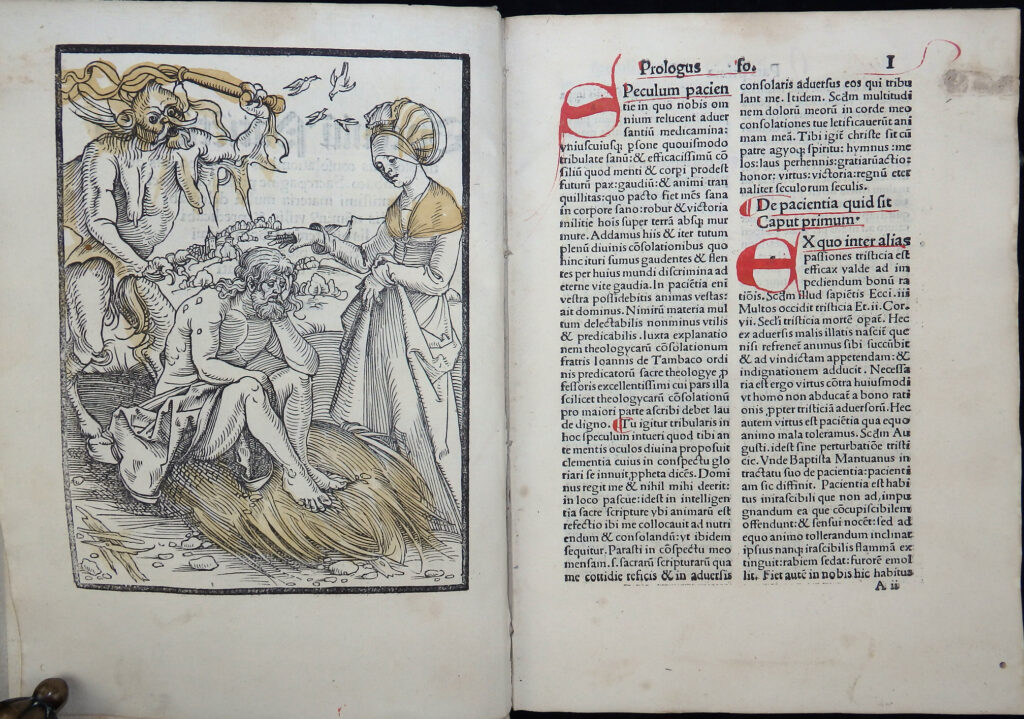 Prologus fo. I
SPeculum pacien
tie in quo nobis om
nium relucent aduer
santiū medicamina:
vniuscuiusq; pſone quouismodo
tribulate sanū: & efficacissimū cō
siliū quod menti & corpi prodest
futurū pax: gaudiū: & animi tran
quillitas: quo pacto fiet mēs sana
in corpore sano: robur & victoria
militie hoīs super terrā absq; mur
mure. Addamus hiis & iter tutum
plenū diuinis cōsolationibus quo
hinc ituri sumus gaudentes & flen
tes per huius mundi discrimina ad
eterne vite gaudia. In pacietia eni
vestra possidebitis animas vestas:
ait dominus. Nimirū materia mul
tum delectabilis nonminus vtilis
& predicabilis. Iuxta explanatio
nem theologycarū cōsolationum
fratris Ioannis de Tambaco ordi
nis predicatorū sacre theologye p
fessoris excellentissimi cui pars illa
scilicet theologycarū cōsolationū
pro maiori parte ascribi debet lau
de digno. Tu igitur tribularis in
hoc speculum intueri quod tibi an
te mentis oculos diuina proposuit
clementia cuius in conspectu glo
riari se innuit ppheta dicēs. Domi
nus regit me & nihil mihi deerit:
in loco pascue: idest in intelligen
tia sacre scripture vbi animarū est
refectio ibi me collocauit ad nutri
endum & consolandū: vt ibidem
sequitur. Parasti in cōspectu meo
mensam. s. sacrarū scripturarū qua
me cottidie reficis & in aduersis
consolaris aduersus eos qui tribu
lant me. Itidem. Scdm multitudi
nem dolorū meorū in corde meo
consolationes tue letificauerūt ani
mam meā. Tibi igit christe sit cū
patre agyoq; spiritu: hymnus: me
los: laus perhennis: gratiarūactio:
honor: virtus: victoria: regnū eter
naliter seculorum seculis.
De pacientia quid sit
Caput primum.
EX quo inter alias
passiones tristicia est
efficax valde ad im
pediendum bonū ra
tiōis. Scdm illud sapiētis Ecci. iii
Multos occidit tristicia Et. ii. Cor.
vii. Secli tristicia mortē opat. Hec
ex aduersis malis illatis nascit que
nisi refrenet animus sibi succūbit
& ad vindictam appetendam: &
indignationem adducit. Necessa
ria est ergo virtus cōtra huiusmodi
vt homo non abducat a bono rati
onis ,ppter tristiciā aduersorū. Hec
autem virtus est paciētia qua equo
animo mala toleramus. Scdm Au
gusti. idest sine perturbatiōe tristi
cie. Vnde Baptista Mantuanus in
tractatu suo de pacientia: pacienti
am sic diffinit. Pacientia est habi
tus inirascibili que non ad, impu
gnandum ea que cōcupiscibilem
offendunt: & sensui nocēt: sed ad
equo animo tollerandum inclinat
ipsius nanq; irascibilis flammā ex
tinguit: rabiem sedat: furorē emol
lit. Fiet autē in nobis hic habitus
A ii